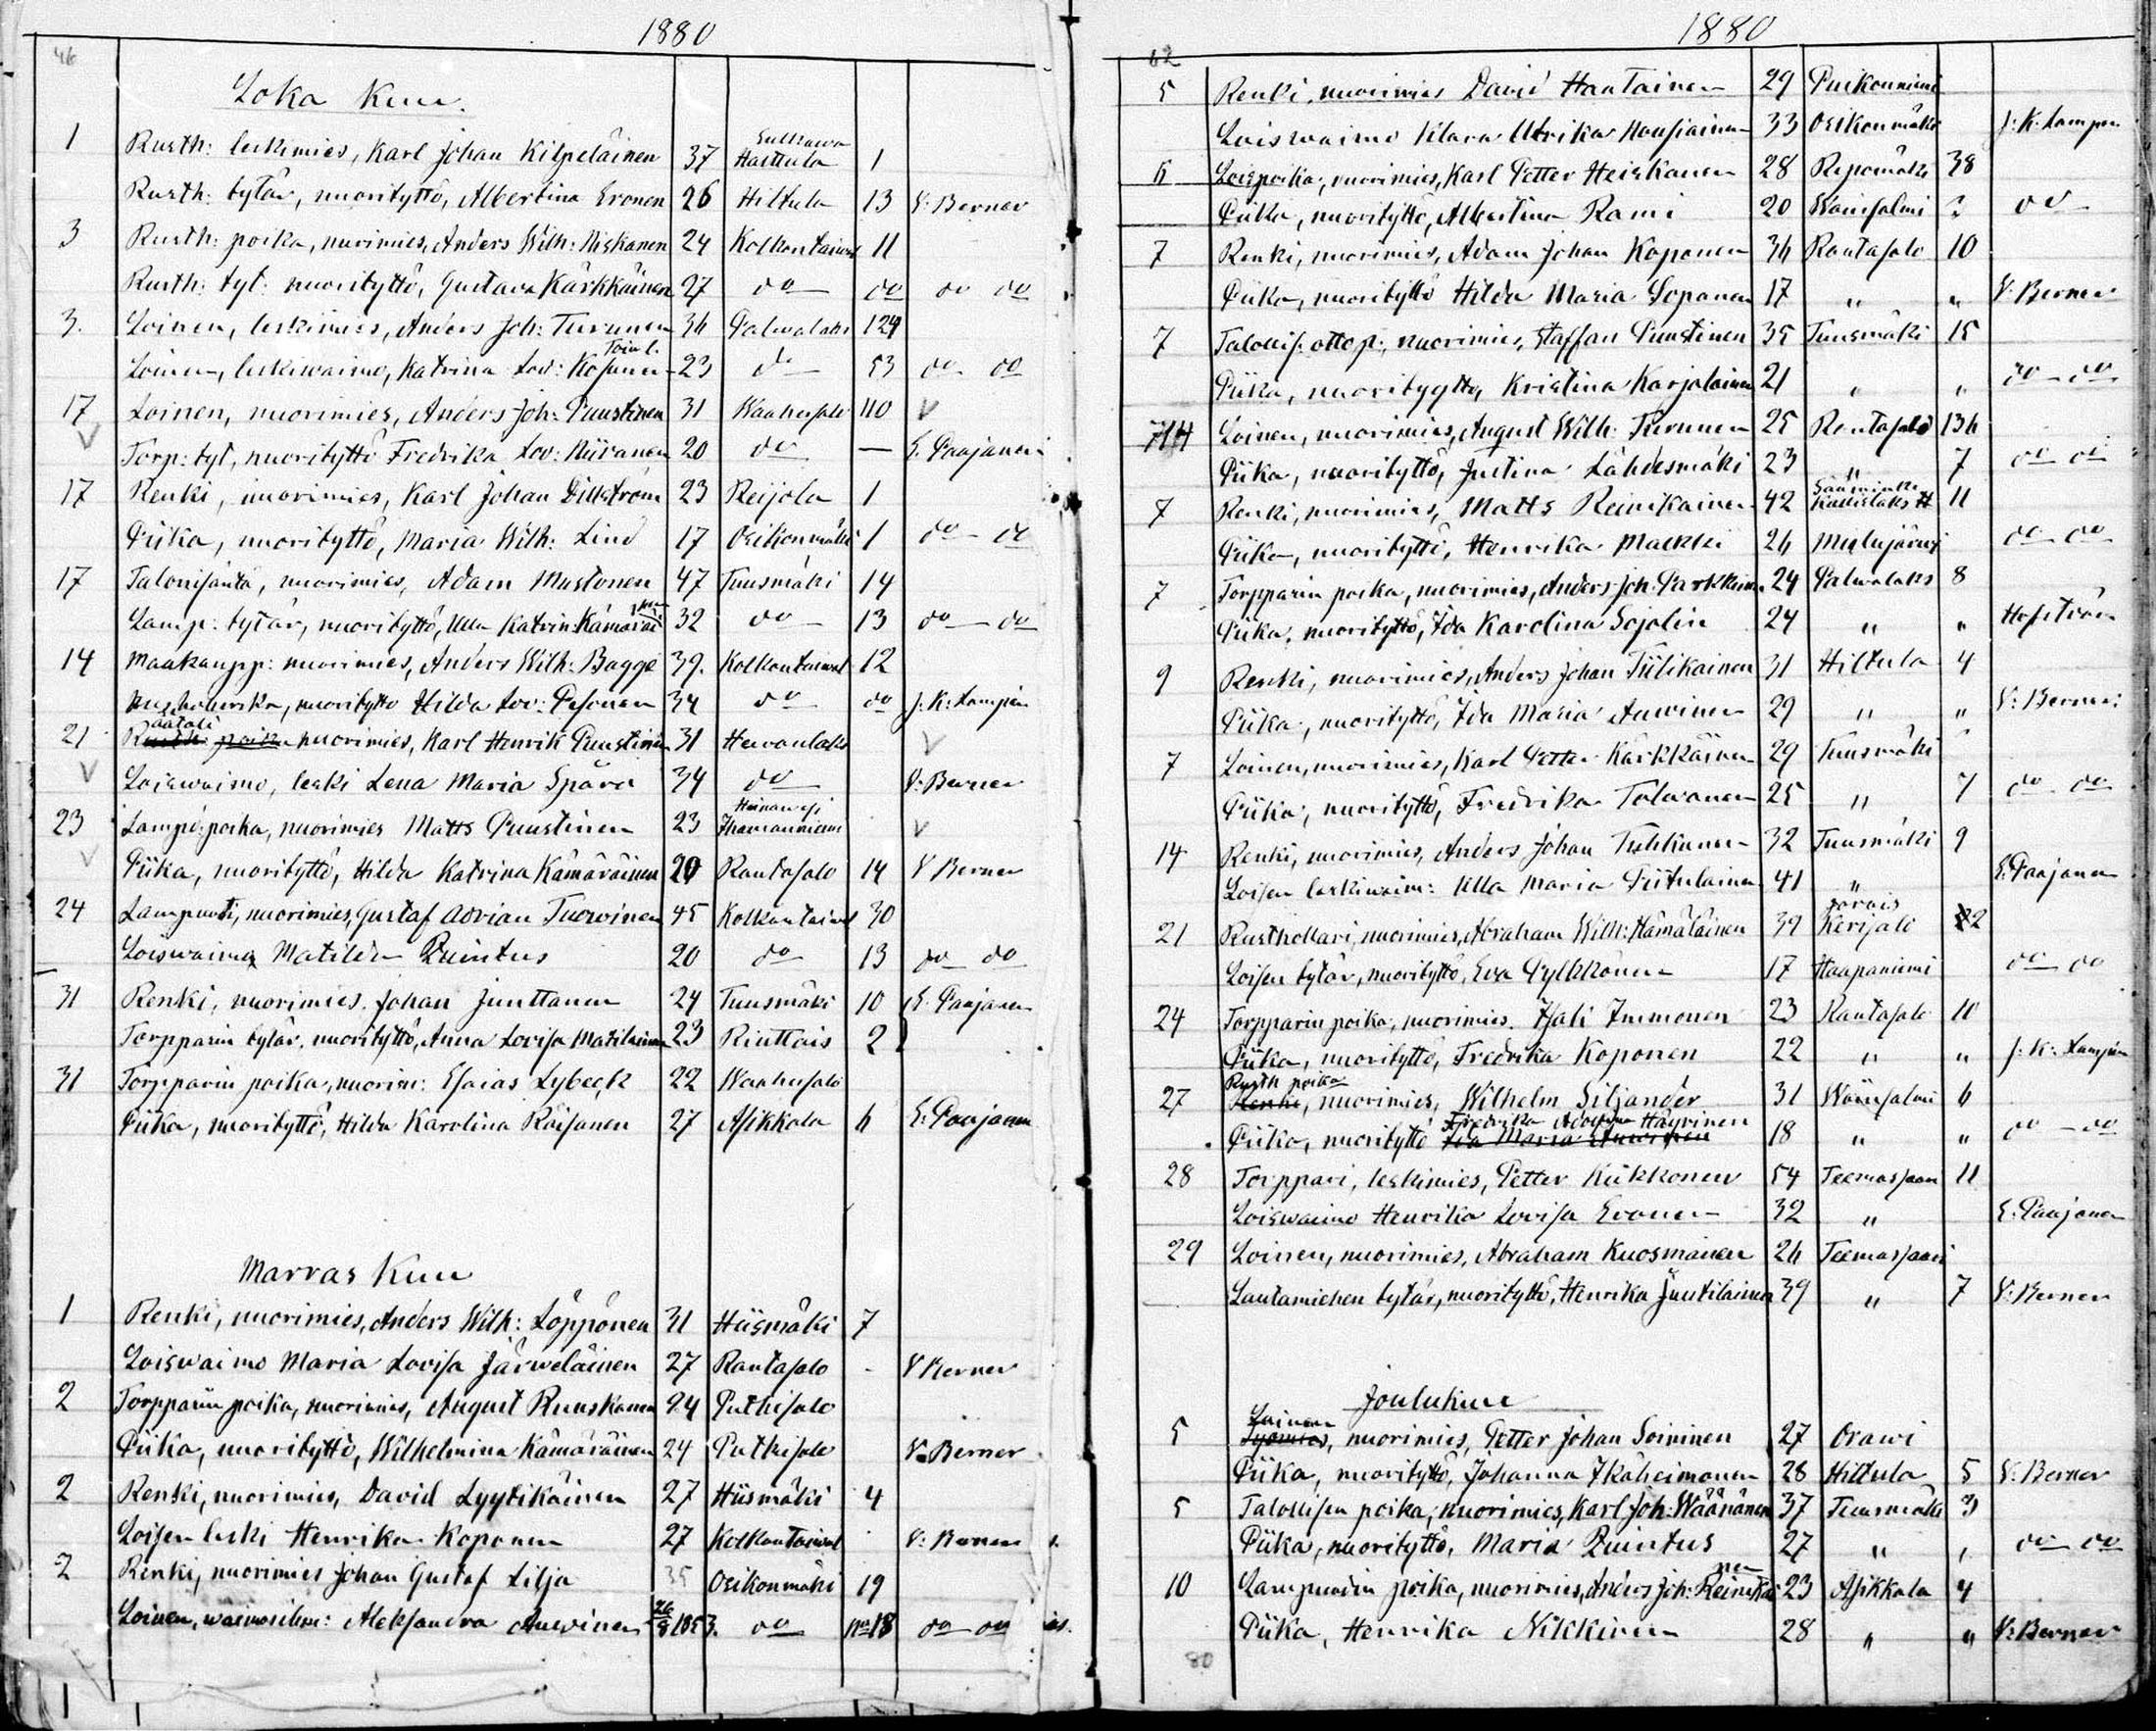 1880
46
Loka Kuu.
1 Rusth: leskimies, Karl Johan Kilpeläinen 37 Sulkawa Haittula 1
Rusth: tytär, nuorityttö, Albertina Eronen 26 Hiltula 13 V: Berner
3 Rusth: poika, nuorimies, Anders Wilh: Niskanen 24 Kolkontaiwal 11
Rusth: tyt: nuorityttö, Gustava Kärkkäinen 27 do do do do
3. Loinen, leskimies, Anders Joh: Turunen 36 Palwalaks 124
Loinen, leskiwaimo, Katrina Lov: Kosunen 23 do 53 do do
17 Loinen, nuorimies, Anders Joh: Puustinen 31 Waahersalo 110 V
V Torp: tyt, nuorityttö Fredrika Lov: Niiranen 20 do — E. Paajanen
17 Renki, nuorimies, Karl Johan Dillström 23 Reijola 1
Piika, nuorityttö, Maria Wilh: Lind 17 Osikonmäki 1 do do
17 Talonisäntä, nuorimies, Adam Mustonen 47 Tuusmäki 14
Lamp: tytär, nuorityttö, Ulla Katrin: Kämäräinen 32 do 13 do do
14 Maakaupp: nuorimies, Anders Wilh: Bagge 39. Kolkontaiwal 12
nuorityttö Hilda Lov: Pesonen 34 do do J. K: Lampén
21 Räätäli nuorimies, Karl Henrik Puustinen 31 Hewonlaks V
V Loiswaimo, leski Lena Maria Spåra 34 do V: Berner
23 Lamp: poika, nuorimies Matts Puustinen 23 Heinawesi Ihamanniemi V
V Piika, nuorityttö, Hilda Katrina Kämäräinen 20 Rantasalo 14 V Berner
24 Lampuoti, nuorimies, Gustaf Adrian Tuowinen 45 Kolkontaiwal 30
Loiswaimo Matilda Quintus 20 do 13 do do
31 Renki, nuorimies. Johan Junttanen 24 Tuusmäki 10 E. Paajanen
Torpparin tytär, nuorityttö, Anna Lovisa Matilainen 23 Rinttais 2
31 Torpparin poika, nuorim: Esaias Lybeck 22 Waahersalo
Piika, nuorityttö, Hilda Karolina Räisänen 27 Asikkala 6 E: Paajanen
Marras Kuu
1 Renki, nuorimies, Anders Wilh: Löppönen 31 Hiismäki 7
Loiswaimo Maria Lovisa Järweläinen 27 Rantasalo - V Berner
2 Torpparin poika, nuorimies, August Ruuskanen 24 Putkisalo
Piika, nuorityttö, Wilhelmina Kämäräinen 24 Putkisalo V. Berner
2 Renki, nuorimies, David Lyytikäinen 27 Hiismäki 4
Loisen leski Henrika Koponen 27 Kolkontaiwal V: Berner
2 Renki, nuorimies Johan Gustaf Lilja 35 Osikonmäki 19
Loinen, Aleksandra Auwinen 26/8 1853. do No 18 do do
1880
62
5 Renki, nuorimies David Hautainen 29 Purkonniemi
Loiswaimo Klara Ulrika Hausiainen 33 Osikonmäki J. K. Lampen
6 Loispoika, nuorimies, Karl Petter Heiskanen 28 Repomäki 38
Piika, nuorityttö, Albertina Rami 20 Wäinsalmi 3 do
7 Renki, nuorimies, Adam Johan Koponen 36 Rantasalo 10
Piika, nuorityttö Hilda Maria Sopanen 17 " " V: Berner
7 Talollis: ottop:, nuorimies, Staffan Puustinen 35 Tuusmäki 15
Piika, nuorityyttö, Kristina Karjalainen 21 " " do do
714 Loinen, nuorimies, August Wilh: Turunen 25 Rantasalo 136
Piika, nuorityttö, Justina Lähdesmäki 23 " 7 do do
7 Renki, nuorimies, Matts Reinikainen 42 Sääminki Kallislaks 11
Piika, nuorityttö, Henrika Malkki 26 Mielujärwi do do
7 Torpparin poika, nuorimies, Anders Joh. Parkkinen 24 Palwalaks 8
Piika, nuorityttö, Ida Karolina Sojolin 24 " " Hofström
9 Renki, nuorimies, Anders Johan Tiilikainen 31 Hiltula 4
Piika, nuorityttö, Ida Maria Auwinen 29 " " V: Berner
7 Loinen, nuorimies, Karl Petter Kärkkäinen 29 Tuusmäki
Piika, nuorityttö, Fredrika Tolwanen 25 " 7 do do
14 Renki, nuorimies, Anders Johan Tuhkunen 32 Tuusmäki 9
Loisen leskiwaim: Ulla Maria Piitulainen 41 " E. Paajanen
21 Rusthollari, nuorimies, Abraham Wilh: Hämäläinen 39 Jorois Kerisalo 22
Loisen tytär, nuorityttö, Eva Pylkkönen 17 Haapaniemi do do
24 Torpparin poika, nuorimies. Isak Immonen 23 Rantasalo 10
Piika, nuorityttö, Fredrika Koponen 22 " " J. K: Lampén
27 Rusth poika Renki, nuorimies, Wilhelm Siljander 31 Wäinsalmi 6
Piika, nuorityttö Fredrika Adolfina Häyrinen Ida Maria Auwinen 18 " " do do
28 Torppari, leskimies, Petter Kiikkonen 54 Teemassaari 11
Loiswaimo Henrika Lovisa Eronen 32 " E: Paajanen
29 Loinen, nuorimies, Abraham Kuosmanen 26 Teemassaari
Lautamiehen tytär, nuorityttö, Henrika Juutilainen 39 " 7 V: Berner
Joulukuu
5 Loinen Työmies, nuorimies, Petter Johan Soininen 27 Orawi
Piika, nuorityttö, Johanna Ikäheimonen 28 Hiltula 5 V: Berner
5 Talollisen poika, nuorimies, Karl Joh: Wäänänen 37 Tuusmäki 3
Piika, nuorityttö, Maria Quintus 27 " " do do
10 Lampuodin poika, nuorimies, Anders Joh: Reinikainen 23 Asikkala 4
Piika, Henrika Nikkinen 28 " " V: Berner
80